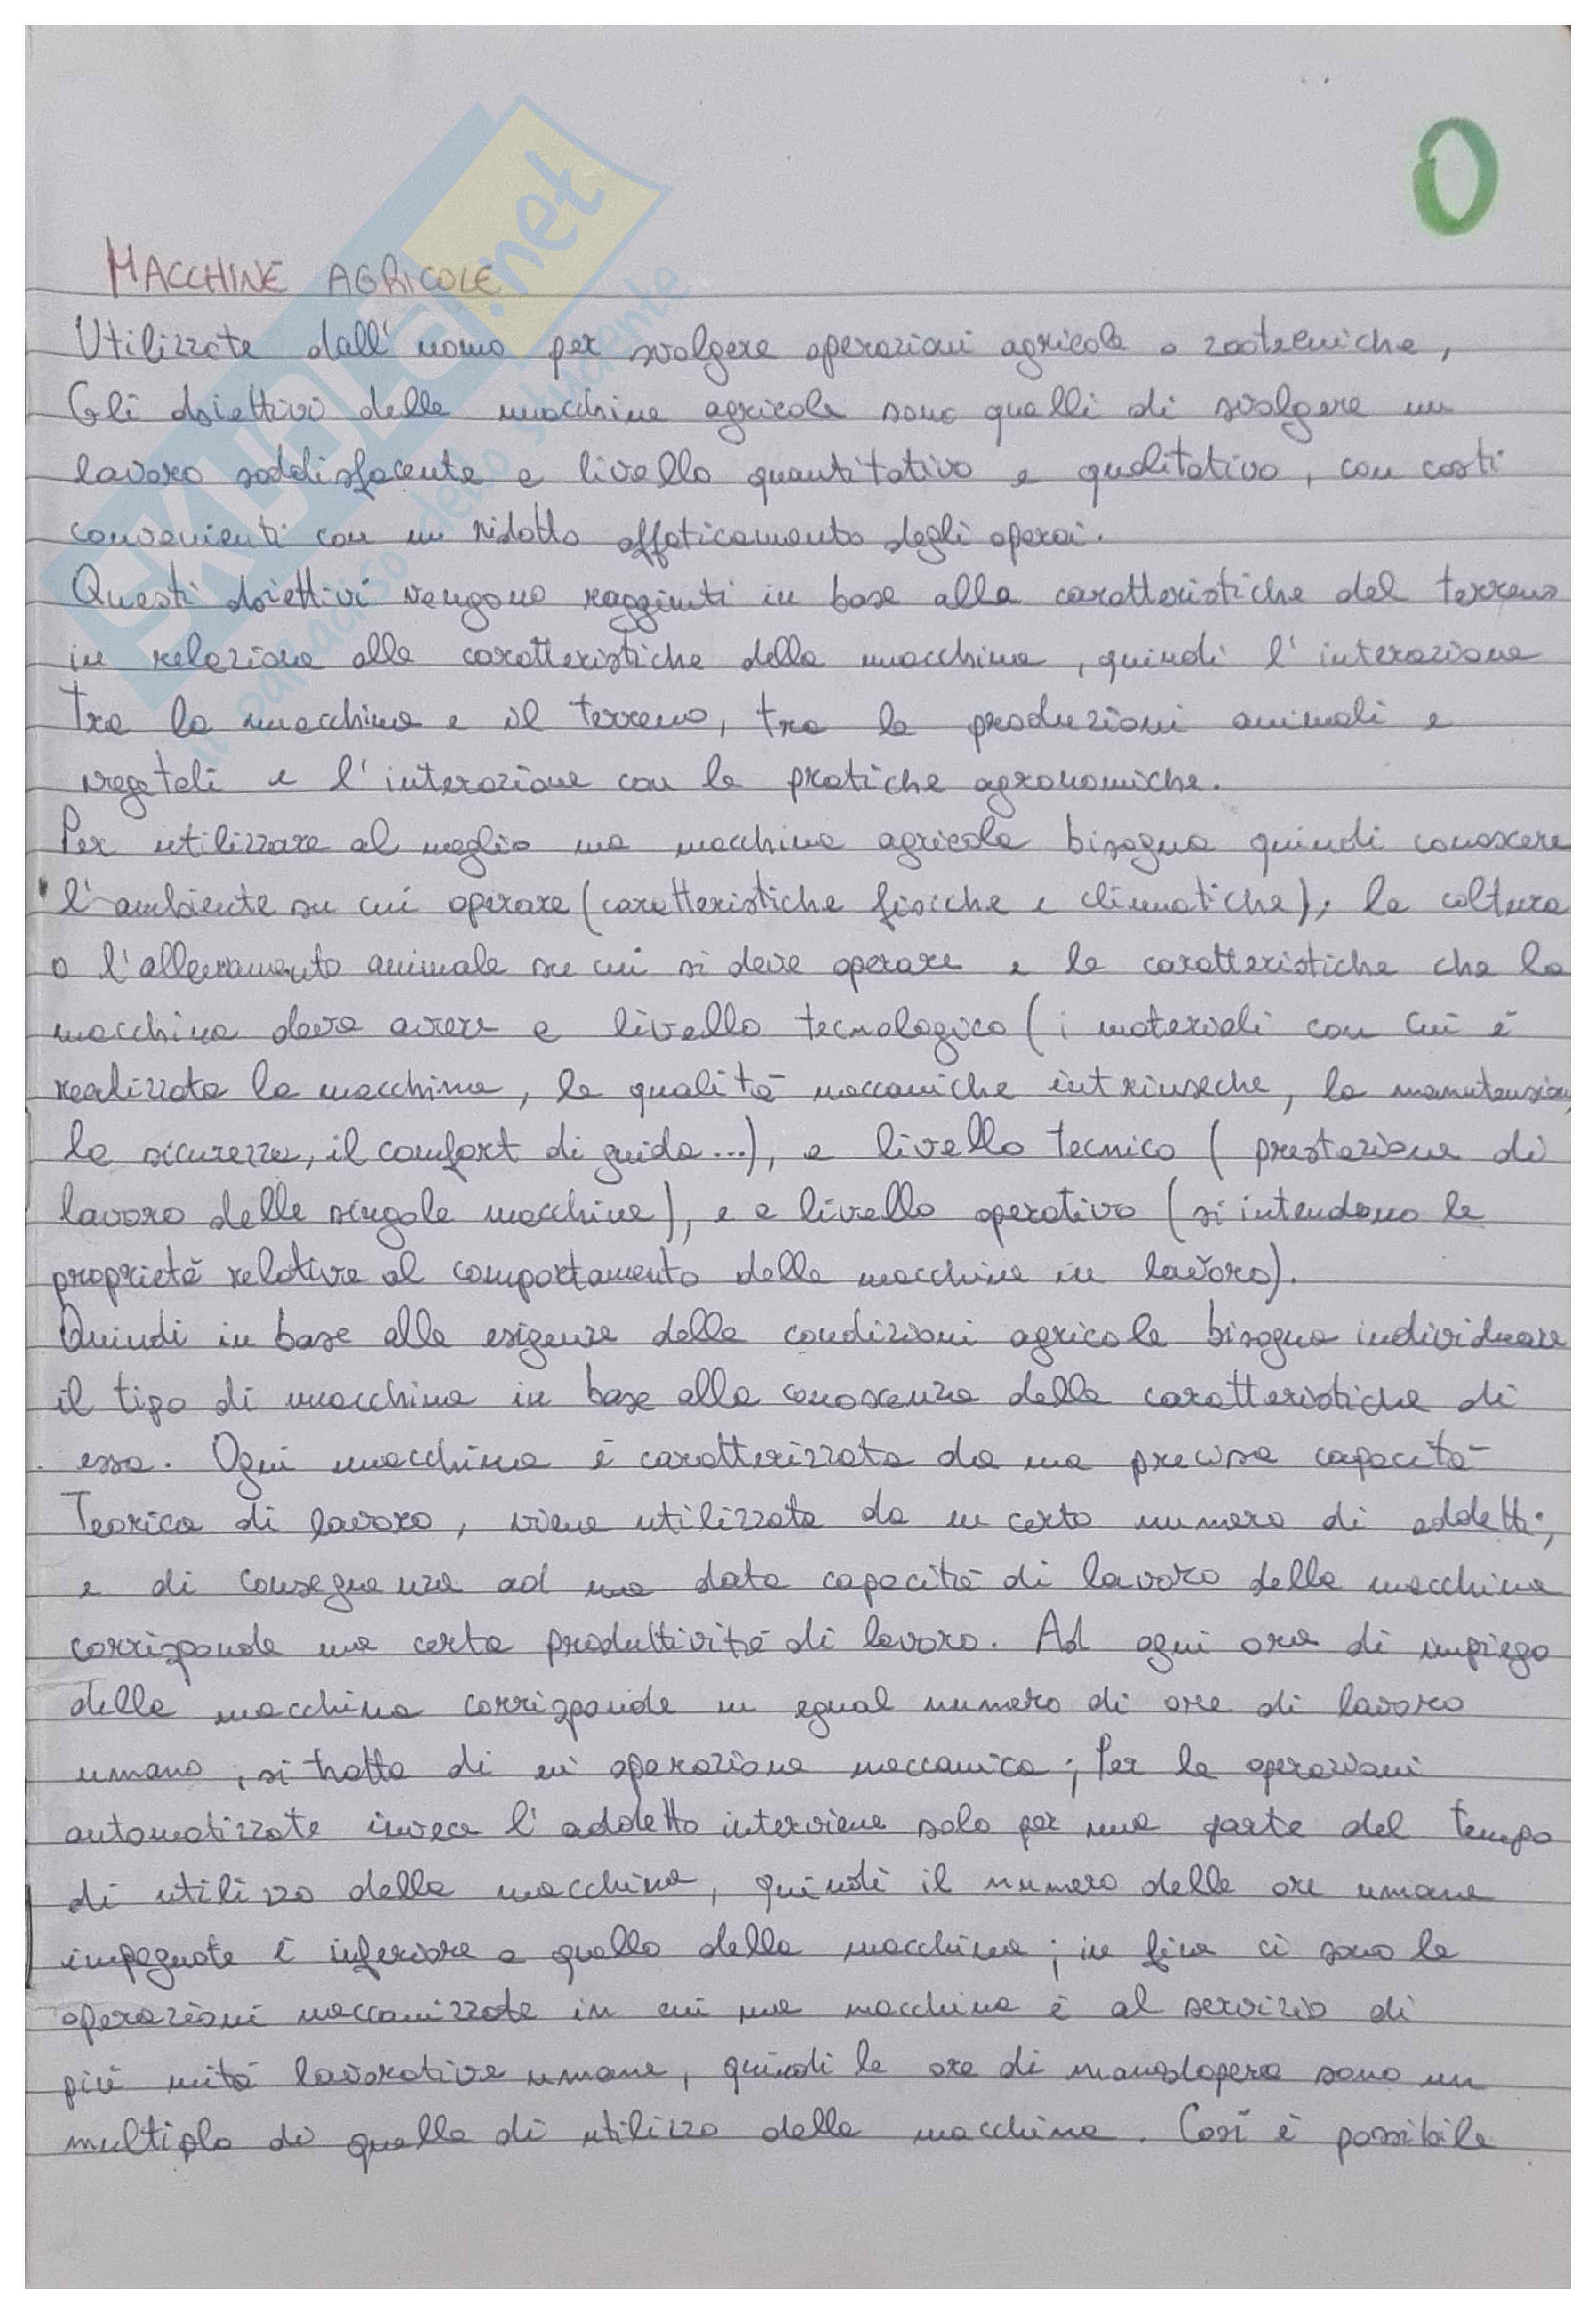 O
MACCHINE AGRICOLE
Utilizzate dall'uomo per svolgere operazioni agricole o zootecniche,
Gli obiettivi delle macchine agricole sono quelli di svolgere un
lavoro soddisfacente a livello quantitativo e qualitativo, con costi
convenienti con un ridotto affaticamento degli operai.
Questi obiettivi vengono raggiunti in base alle caratteristiche del terreno
in relazione alle caratteristiche della macchina, quindi l'interazione
tra la macchina e il terreno, tra le produzioni animali e
vegetali e l'interazione con le pratiche agronomiche.
Per utilizzare al meglio una macchina agricola bisogna quindi conoscere
l'ambiente su cui operare (caratteristiche fisiche e climatiche), la coltura
o l'allevamento animale su cui si deve operare e le caratteristiche che la
macchina deve avere a livello tecnologico (i materiali con cui è
realizzata la macchina, le qualità meccaniche intrinseche, la manutenzione,
la sicurezza, il comfort di guida...), a livello tecnico (prestazione di
lavoro delle singole macchine), e a livello operativo (si intendono le
proprietà relative al comportamento delle macchine in lavoro).
Quindi in base alle esigenze delle condizioni agricole bisogna individuare
il tipo di macchina in base alla conoscenza delle caratteristiche di
essa. Ogni macchina è caratterizzata da una precisa capacità
teorica di lavoro, viene utilizzata da un certo numero di addetti,
e di conseguenza ad una data capacità di lavoro della macchina
corrisponde una certa produttività di lavoro. Ad ogni ora di impiego
della macchina corrisponde un egual numero di ore di lavoro
umano, si tratta di un'operazione meccanica; Per le operazioni
automatizzate invece l'addetto interviene solo per una parte del tempo
di utilizzo della macchina, quindi il numero delle ore umane
impegnate è inferiore a quello della macchina; in fine ci sono le
operazioni meccanizzate in cui una macchina è al servizio di
più unità lavorative umane, quindi le ore di manodopera sono un
multiplo di quelle di utilizzo della macchina. Così è possibile
SKUOLA.net
il paradiso dello studente